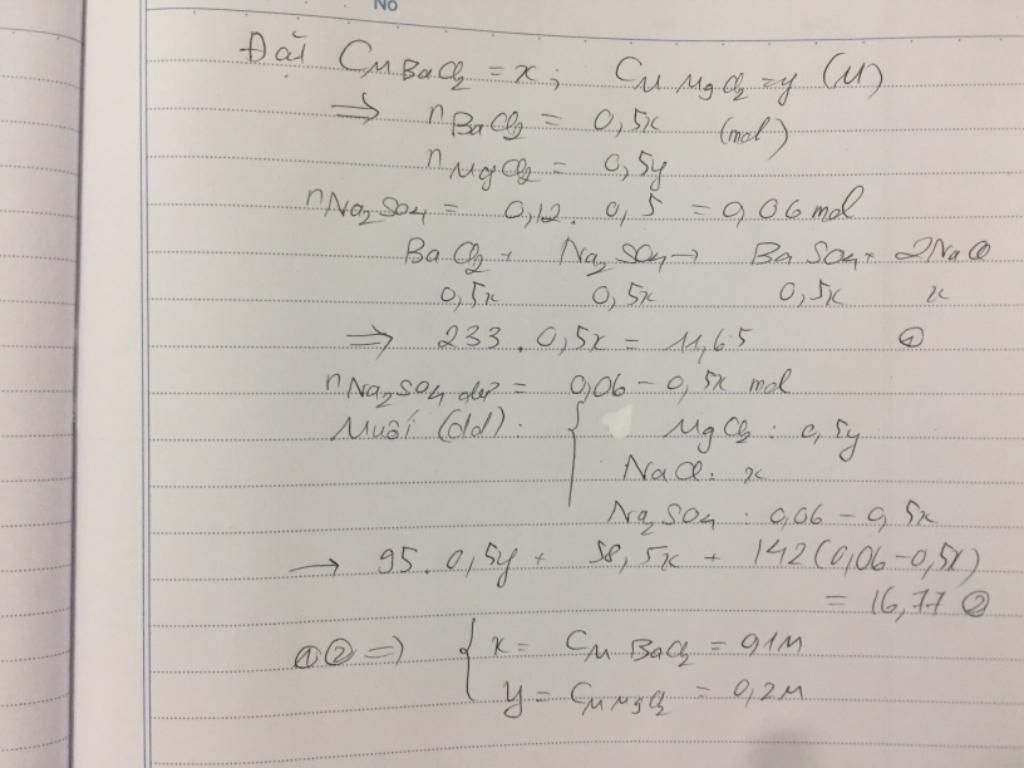 No
Đặt CM BaCl2 = x; CM MgCl2 = y (M)
⇒ nBaCl2 = 0,5x (mol)
nMgCl2 = 0,5y
nNa2SO4 = 0,12. 0,5 = 0,06 mol
BaCl2 + Na2SO4 → BaSO4 + 2NaCl
0,5x 0,5x 0,5x x
⇒ 233.0,5x = 11,65 ①
nNa2SO4 dư = 0,06 - 0,5x mol
Muối (dd): { MgCl2: 0,5y
NaCl: x
Na2SO4: 0,06 - 0,5x
→ 95.0,5y + 58,5x + 142(0,06-0,5x)
= 16,77 ②
①② ⇒ { x = CM BaCl2 = 0,1M
y = CM MgCl2 = 0,2M